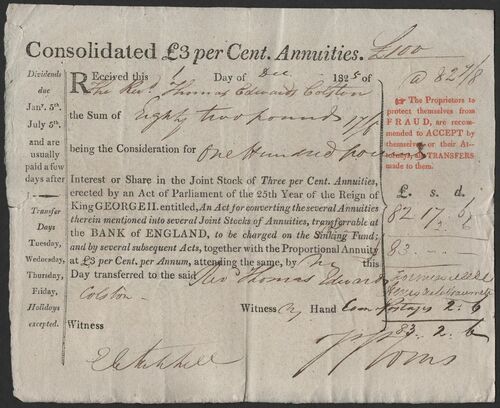 Consolidated £3 per Cent. Annuities. £100
Dividends
due
Jany. 5th.
July 5th.
and are
usually
paid a few
days after
Transfer
Days
Tuesday,
Wednesday,
Thursday,
Friday,
Holidays
excepted.
Received this Day of Dec 1825 of
The Revd. Thomas Edward Colston
the Sum of Eighty two pounds 17/6
being the Consideration for One Hundred pounds
Interest or Share in the Joint Stock of Three per Cent. Annuities,
erected by an Act of Parliament of the 25th Year of the Reign of
King GEORGE II. entitled, An Act for converting the several Annuities
therein mentioned into several Joint Stocks of Annuities, transferrable at
the BANK of ENGLAND, to be charged on the Sinking Fund;
and by several subsequent Acts, together with the Proportional Annuity
at £3 per Cent. per Annum, attending the same, by me this
Day transferred to the said Revd Thomas Edward
Colston
Witness my Hand
Witness
@ 82 7/8
☞ The Proprietors to
protect themselves from
FRAUD, are recom-
mended to ACCEPT by
themselves or their At-
tornies, all TRANSFERS
made to them.
£. s. d.
82 17 6
83
Postages 2: 6
83 2 6